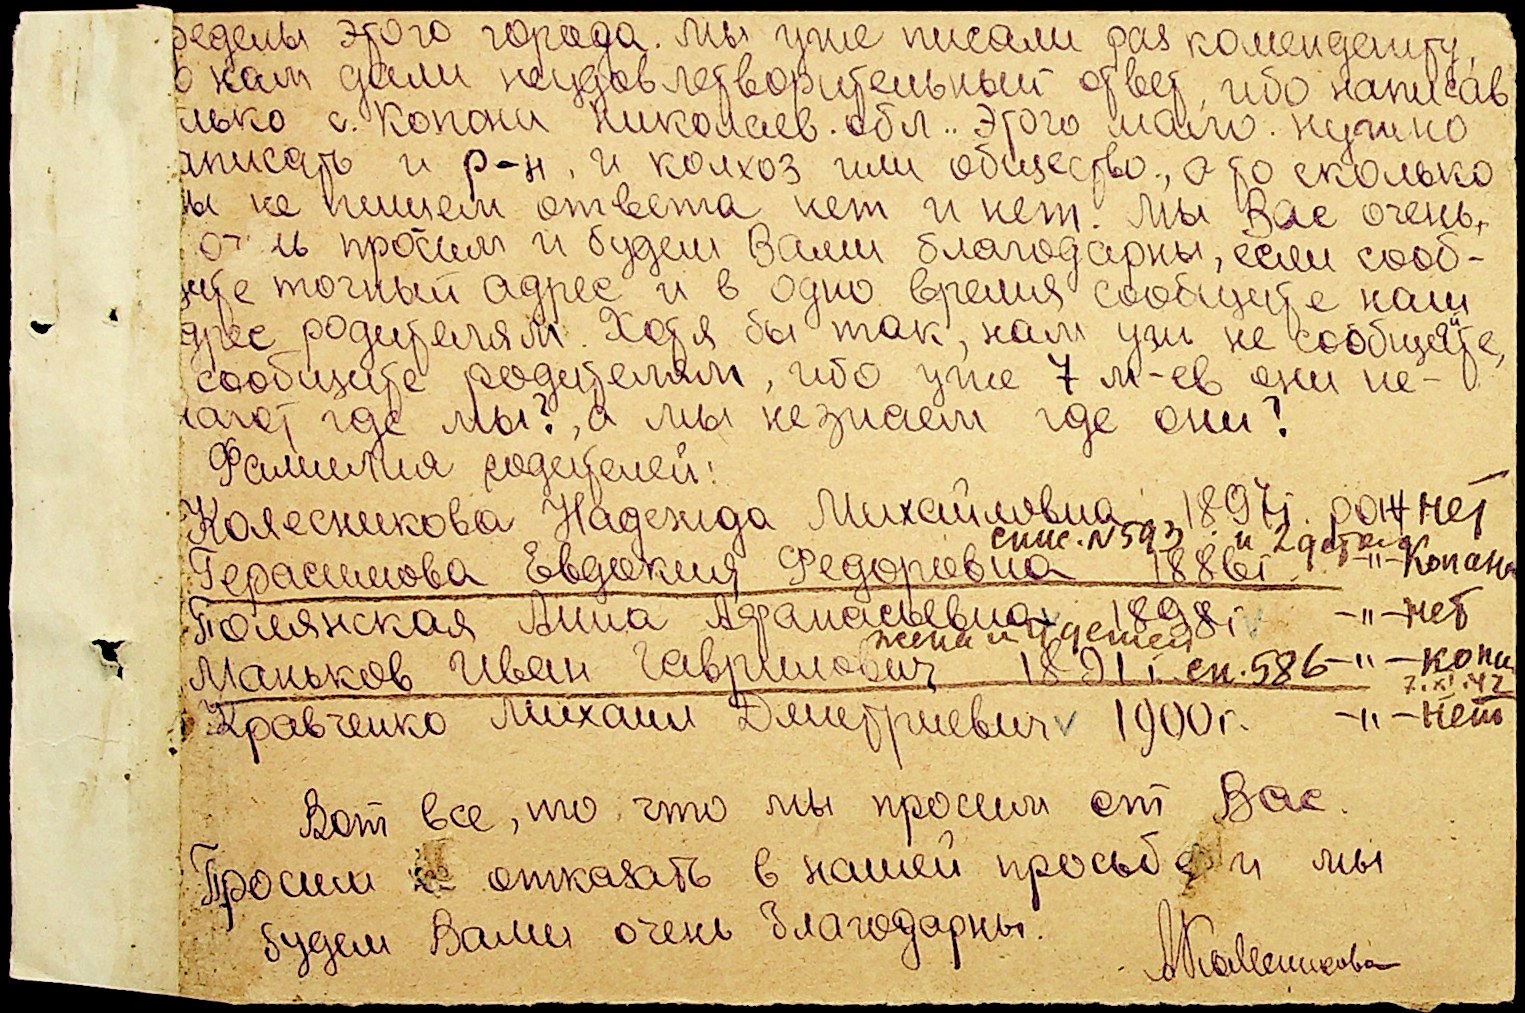 ределы этого города. Мы уже писали раз коменденту,
о нам дали неудовлетворительный ответ, ибо написав
лько с. Копани Николаев. обл.. Этого мало. Нужно
аписать и р-н, и колхоз или общество., а то сколько
ы не пишем ответа нет и нет. Мы Вас очень,
просим и будем Вами благодарны, если сооб-
щите точный адрес и в одно время сообщите наш
дрес родителям. Хотя бы так, нам уж не сообщайте,
сообщите родителям, ибо уже 7 м-ев они не-
нают где мы?, а мы не знаем где они?
Фамилия родителей:
Колесникова Надежда Михайловна 1897г. рож нет
спис. N 593 и 2 детей
Герасимова Евдокия Федоровна 1886г. -"- Копани
Полянская Анна Афанасьевна 1898г. -"- нет
жена и 4 детей
Маньков Иван Гаврилович 1891г. сп. 586 -"- копи
7.XI.42
Кравченко Михаил Дмитриевич 1900г. -"- нет
Вот все, то что мы просим от Вас.
Просим не отказать в нашей просьбе и мы
будем Вами очень благодарны.
АКолесникова